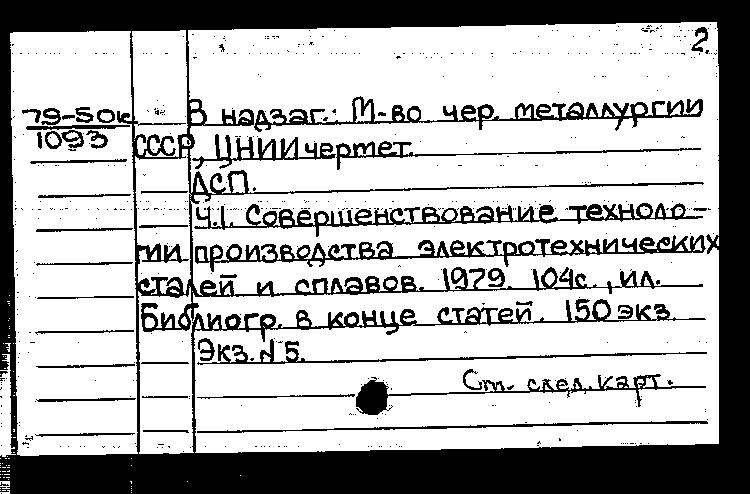 2.
79-50к
1093
В надзаг.: М-во чер. металлургии
СССР, ЦНИИчермет.
ДСП.
Ч.1. Совершенствование техноло-
гии производства электротехнических
сталей и сплавов. 1979. 104с., ил.
Библиогр. в конце статей. 150 экз.
Экз. N 5.
См. след. карт.